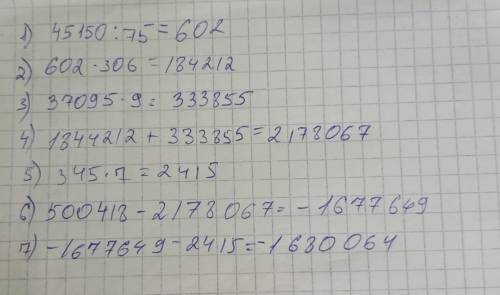 1) 45150 : 75 = 602
2) 602 · 306 = 184212
3) 37095 · 9 = 333855
4) 1844212 + 333855 = 2178067
5) 345 · 7 = 2415
6) 500418 - 2178067 = - 1677649
7) -1677649 - 2415 = -1680064